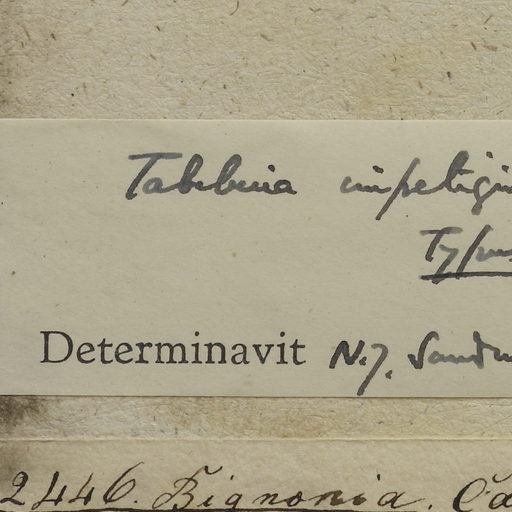 Tabebuia impetigin
Typus
Determinavit N.J. Sandw
2446. Bignonia. Ca